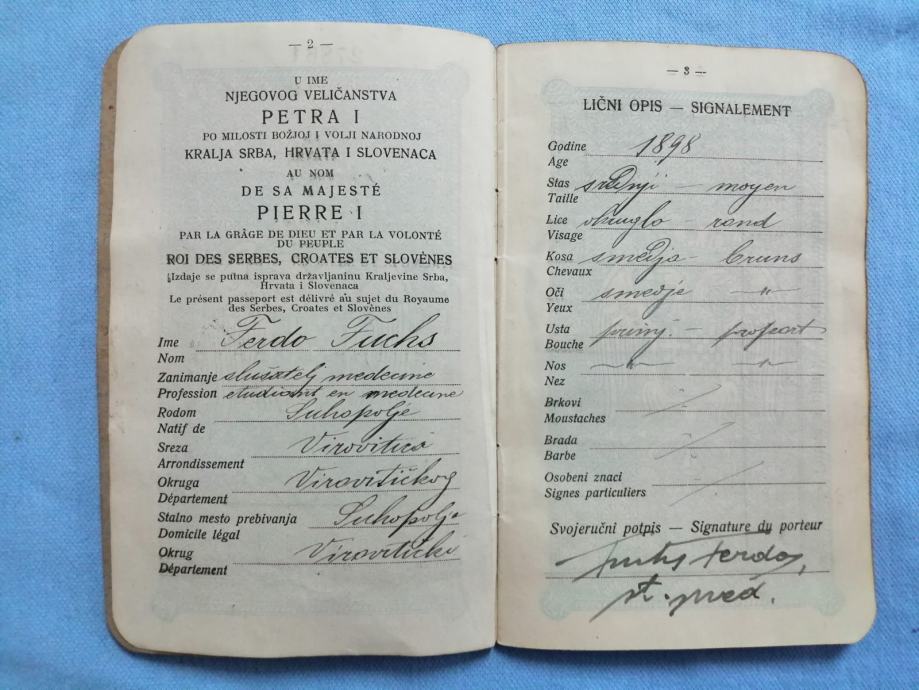 — 2 —
U IME
NJEGOVOG VELIČANSTVA
PETRA I
PO MILOSTI BOŽJOJ I VOLJI NARODNOJ
KRALJA SRBA, HRVATA I SLOVENACA
AU NOM
DE SA MAJESTÉ
PIERRE I
PAR LA GRÂGE DE DIEU ET PAR LA VOLONTÉ
DU PEUPLE
ROI DES SERBES, CROATES ET SLOVÈNES
Izdaje se putna isprava državljaninu Kraljevine Srba,
Hrvata i Slovenaca
Le présent passeport est délivré au sujet du Royaume
des Serbes, Croates et Slovènes
Ime Ferdo Fuchs
Nom
Zanimanje slušatelj medecine
Profession etudiant en medecine
Rodom Suhopolje
Natif de
Sreza Virovitica
Arrondissement
Okruga Virovitičkog
Département
Stalno mesto prebivanja Suhopolje
Domicile légal
Okrug Virovitički
Département
— 3 —
LIČNI OPIS — SIGNALEMENT
Godine 1898
Age
Stas srednji — moyen
Taille
Lice okruglo — rond
Visage
Kosa smedja — bruns
Chevaux
Oči smedje — „ —
Yeux
Usta
Bouche
Nos — „ — — „ —
Nez
Brkovi
Moustaches
Brada
Barbe
Osobeni znaci
Signes particuliers
Svojeručni potpis — Signature du porteur
Fuchs Ferdo,
st. med.